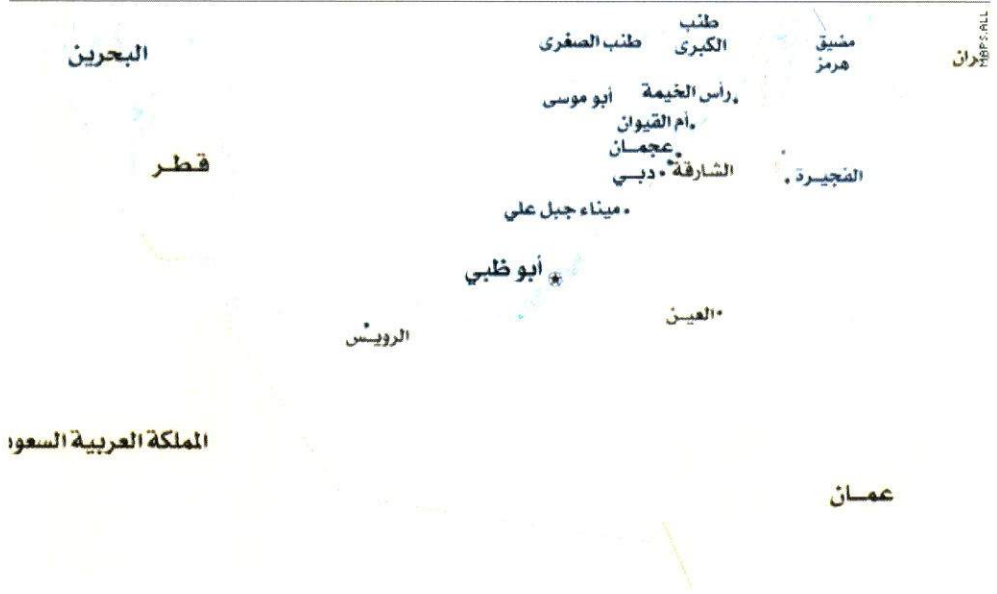 البحرين
طنب
الكبرى
طنب الصغرى
مضيق
هرمز
يران
MAPS.ALL
رأس الخيمة
أبو موسى
أم القيوان
عجمــان
قـطـر
الشارقة
دبــي
الفجيـرة
ميناء جبل علي
أبو ظبي
العيــن
الرويــس
المملكة العربية السعود
عمــان